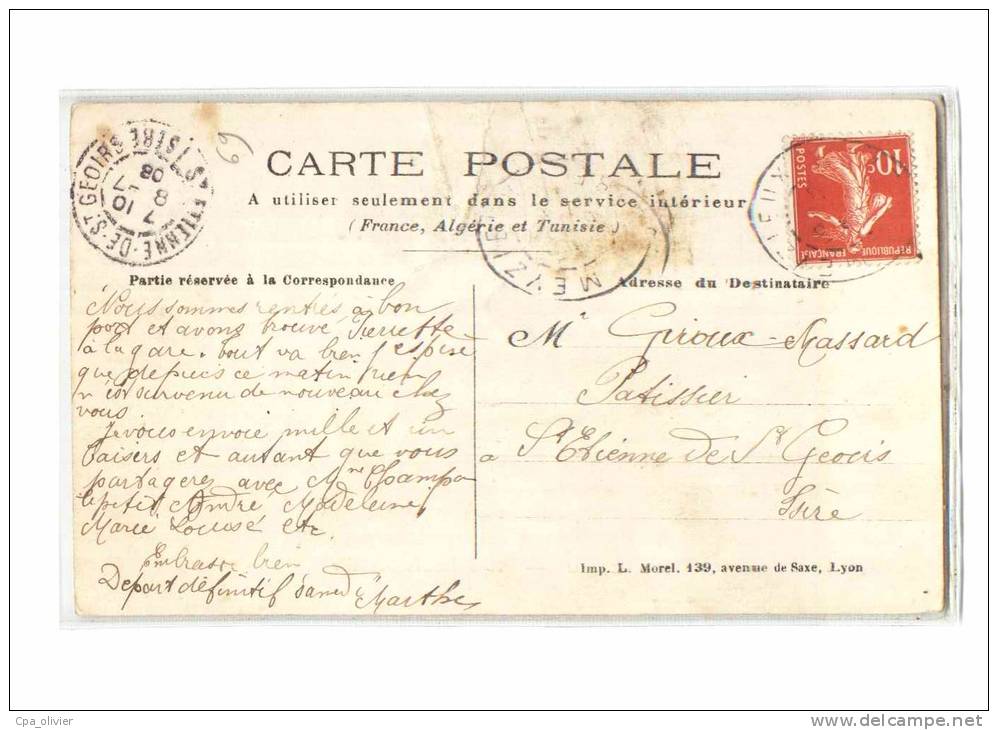 CARTE POSTALE
A utiliser seulement dans le service intérieur
(France, Algérie et Tunisie)
Partie réservée à la Correspondance
Nous sommes rentrés à bon
port et avons trouvé Pierrette
à la gare. tout va bien j'espère
que depuis ce matin rien
n'est survenu de nouveau chez
vous.
Je vous envoie mille et un
baisers et autant que vous
partagerez avec Mme Champa
le petit André Madeleine
Marie Louise etc
Embrasse bien
Départ définitif samedi Marthe
Adresse du Destinataire
Mr Giroux-Massard
Patissier
à St Etienne de St Geoirs
Isère
Imp. L. Morel, 139, avenue de Saxe, Lyon
ST ETIENNE-DE-ST GEOIRS (ISÈRE)
7 10
8 -7
08
69
MEYZIEUX
MEYZIEUX
10c
POSTES
REPUBLIQUE
FRANÇAISE
Cpa_olivier
www.delcampe.net